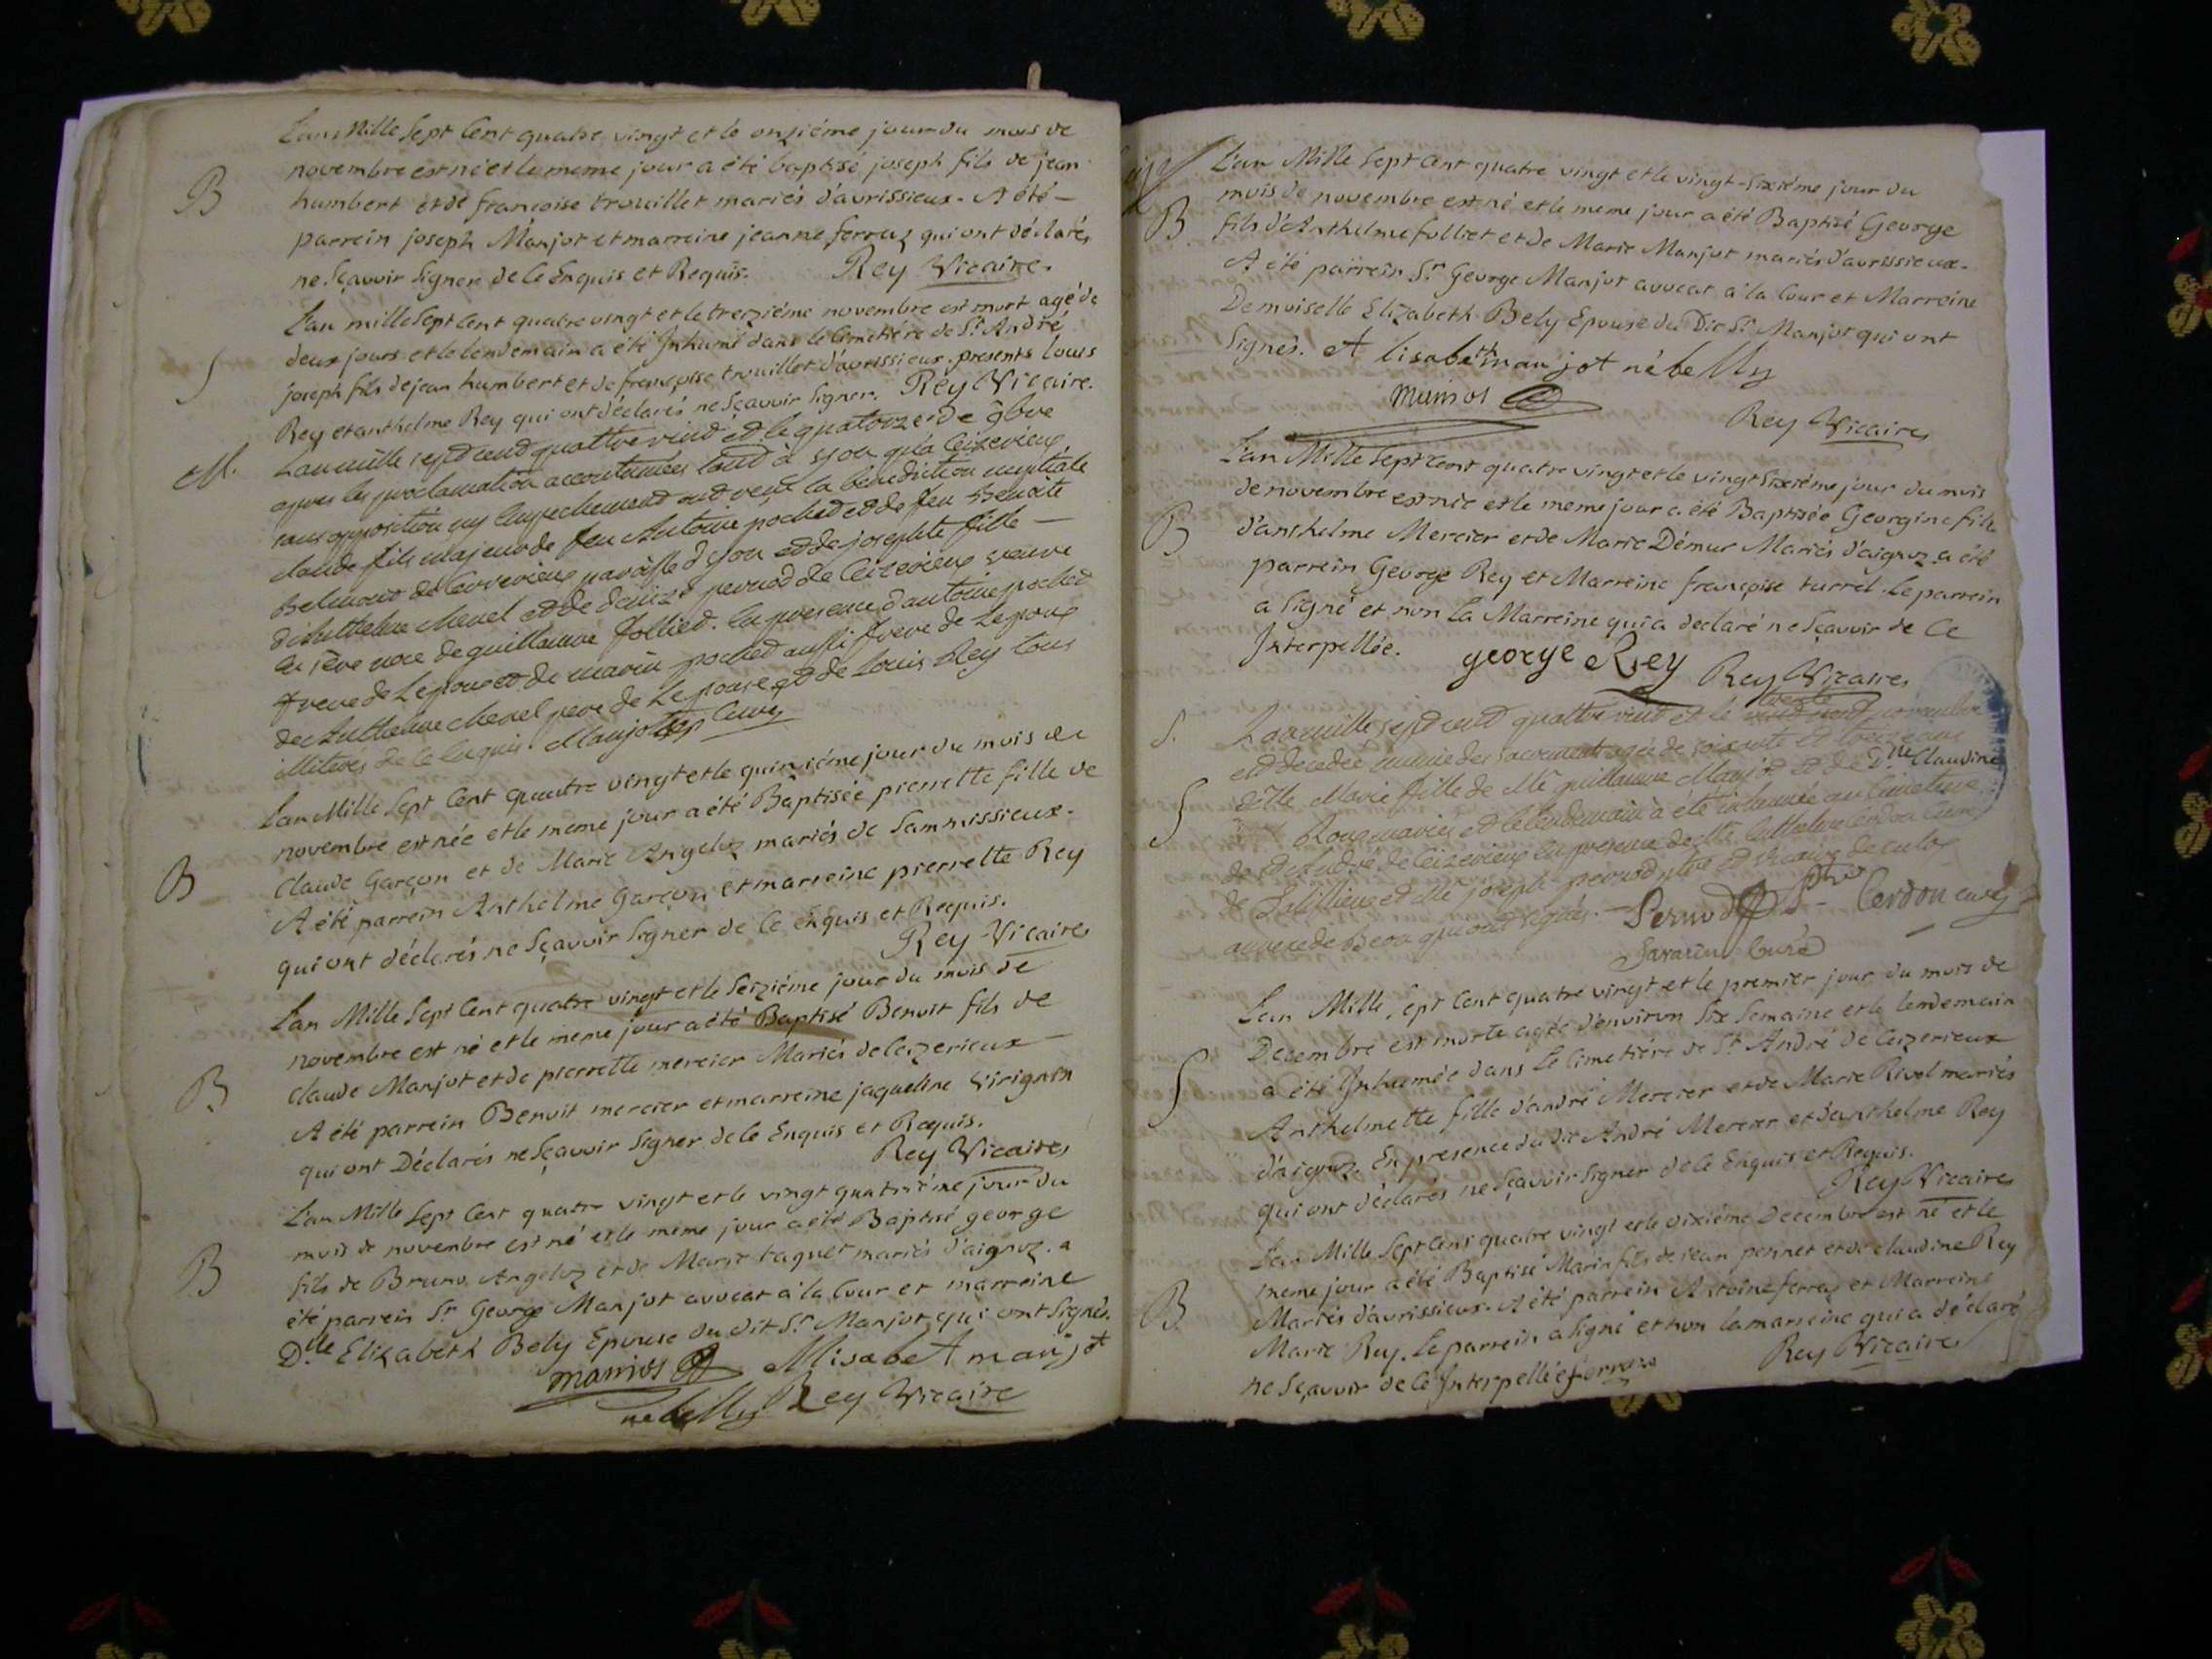 L'an Mille Sept Cent quatre vingt et le onziéme jour du mois de
novembre est né et le meme jour a été baptisé joseph fils de jean
B
humbert et de françoise trouillet mariés d'avrissieux. A été
parrein joseph Manjot et marreine jeanne ferraz qui ont déclarés
ne Sçavoir Signer de Ce Enquis et Requis. Rey Vicaire.
L'an mille Sept Cent quatre vingt et le treiziéme novembre est mort agé de
deux jours et le lendemain a été Inhumé dans le Cimetiére de St. André
S
joseph fils de jean humbert et de françoise trouillet d'avrissieux. presents louis
Rey et anthelme Rey qui ont déclarés ne Sçavoir Signer. Rey Vicaire.
M. L'an mille sept cent quattre vint et le quatorze de 9bre
apres les proclamation accoutumées tant a yon qu'a Ceizerieux
sans opposition ny Empechement ont reçu la benediction nuptiale
claude fils majeur de feu Antoine pochet et de feu Benoite
Belmont de Cerverieux paroisse d'yon et de josephte fille
d'Anthelme chenel et de denize pernod de Ceizerieux veuve
en 1ere noce de guillaume follied. En presence d'antoine pochet
frere de Lepoux et de marin pochet aussi frere de Lepoux
de Anthelme chenel pere de Lepouse et de Louis Rey tous
illiteres de ce Enquis Manjot curé
L'an Mille Sept Cent quatre vingt et le quinziéme jour du mois de
novembre est née et le meme jour a été Baptisée pierrette fille de
B
Claude Garçon et de Marie Angeloz mariés de Sammissieux.
A été parrein Anthelme Garçon et marreine pierrette Rey
qui ont déclarés ne Sçavoir Signer de Ce enquis et Requis.
Rey Vicaire
L'an Mille Sept Cent quatre vingt et le Seiziéme jour du mois de
novembre est né et le meme jour a été Baptisé Benoit fils de
B.
Claude Manjot et de pierrette mercier Mariés de Ceizerieux
A été parrein Benoit mercier et marreine jaqueline Virignin
qui ont Déclarés ne Sçavoir Signer de Ce Enquis et Requis.
Rey Vicaire
L'an Mille Sept Cent quatre vingt et le vingt quatriéme jour du
mois de novembre est né et le meme jour a été Baptisé george
B
fils de Bruno Angeloz et de Marie taquet mariés d'aignoz. a
été parrein Sr. George Manjot avocat a la Cour et marreine
Dlle Elizabeth Bely Epouse du dit Sr. Manjot qui ont Signés.
manjot Elisabet manjot
ne belly Rey Vicaire
L'an Mille Sept Cent quatre vingt et le vingt-Sixiéme jour du
mois de novembre est né et le meme jour a été Baptisé George
B.
fils d'Anthelme folliet et de Marie Manjot mariés d'avrissieux.
A été parrein Sr. George Manjot avocat a la Cour et Marreine
Demoiselle Elizabeth Bely Epouse du Dit Sr. Manjot qui ont
Signés. Elisabeth manjot né belly
manjot
Rey Vicaire
L'an Mille Sept Cent quatre vingt et le vingt Sixiéme jour du mois
de novembre est née et le meme jour a été Baptisée Georgine fille
B
d'anthelme Mercier et de Marie Démur Mariés d'aignoz. a été
parrein George Rey et Marreine françoise turrel. Le parrein
a Signé et non la Marreine qui a declaré ne Sçavoir de Ce
Interpellée. george Rey Rey Vicaire
trente
S. L'an mille sept cent quattre vint et le novembre
est decedée munie des sacrements agée de soixante et treize ans
delle Marie fille de Me guillaume Manjot et de Dlle Claudine
S
Rougemarin et le lendemain à été inhumée au Cimetiere
de st André de Ceizerieux en presence de Mre Anthelme Cerdon Curé
de Talissieu et Mr joseph pernod ptre et vicaire de culoz
annexe de Beon qui ont signés. Pernod Ptre Cerdon curé
Savarin Curé
L'an Mille Sept Cent quatre vingt et le premier jour du mois de
Decembre est morte agée d'environ Six Semaine et le lendemain
S
a été Inhumée dans Le Cimetiére de St. André de Ceizerieux
Anthelmette fille d'andré Mercier et de Marie Rivel mariés
d'aignoz. En presence du dit André Mercier et d'anthelme Rey
qui ont déclarés ne Sçavoir Signer de Ce Enquis et Requis.
Rey Vicaire
L'an Mille Sept Cens quatre vingt et le dixiéme Decembre est né et le
meme jour a été Baptisé Marin fils de jean pennet et de claudine Rey
B.
Mariés d'avrissieux. A été parrein Antoine ferraz et Marreine
Marie Rey. Le parrein a Signé et non la marreine qui a déclaré
ne Sçavoir de Ce Interpellée ferraz Rey Vicaire